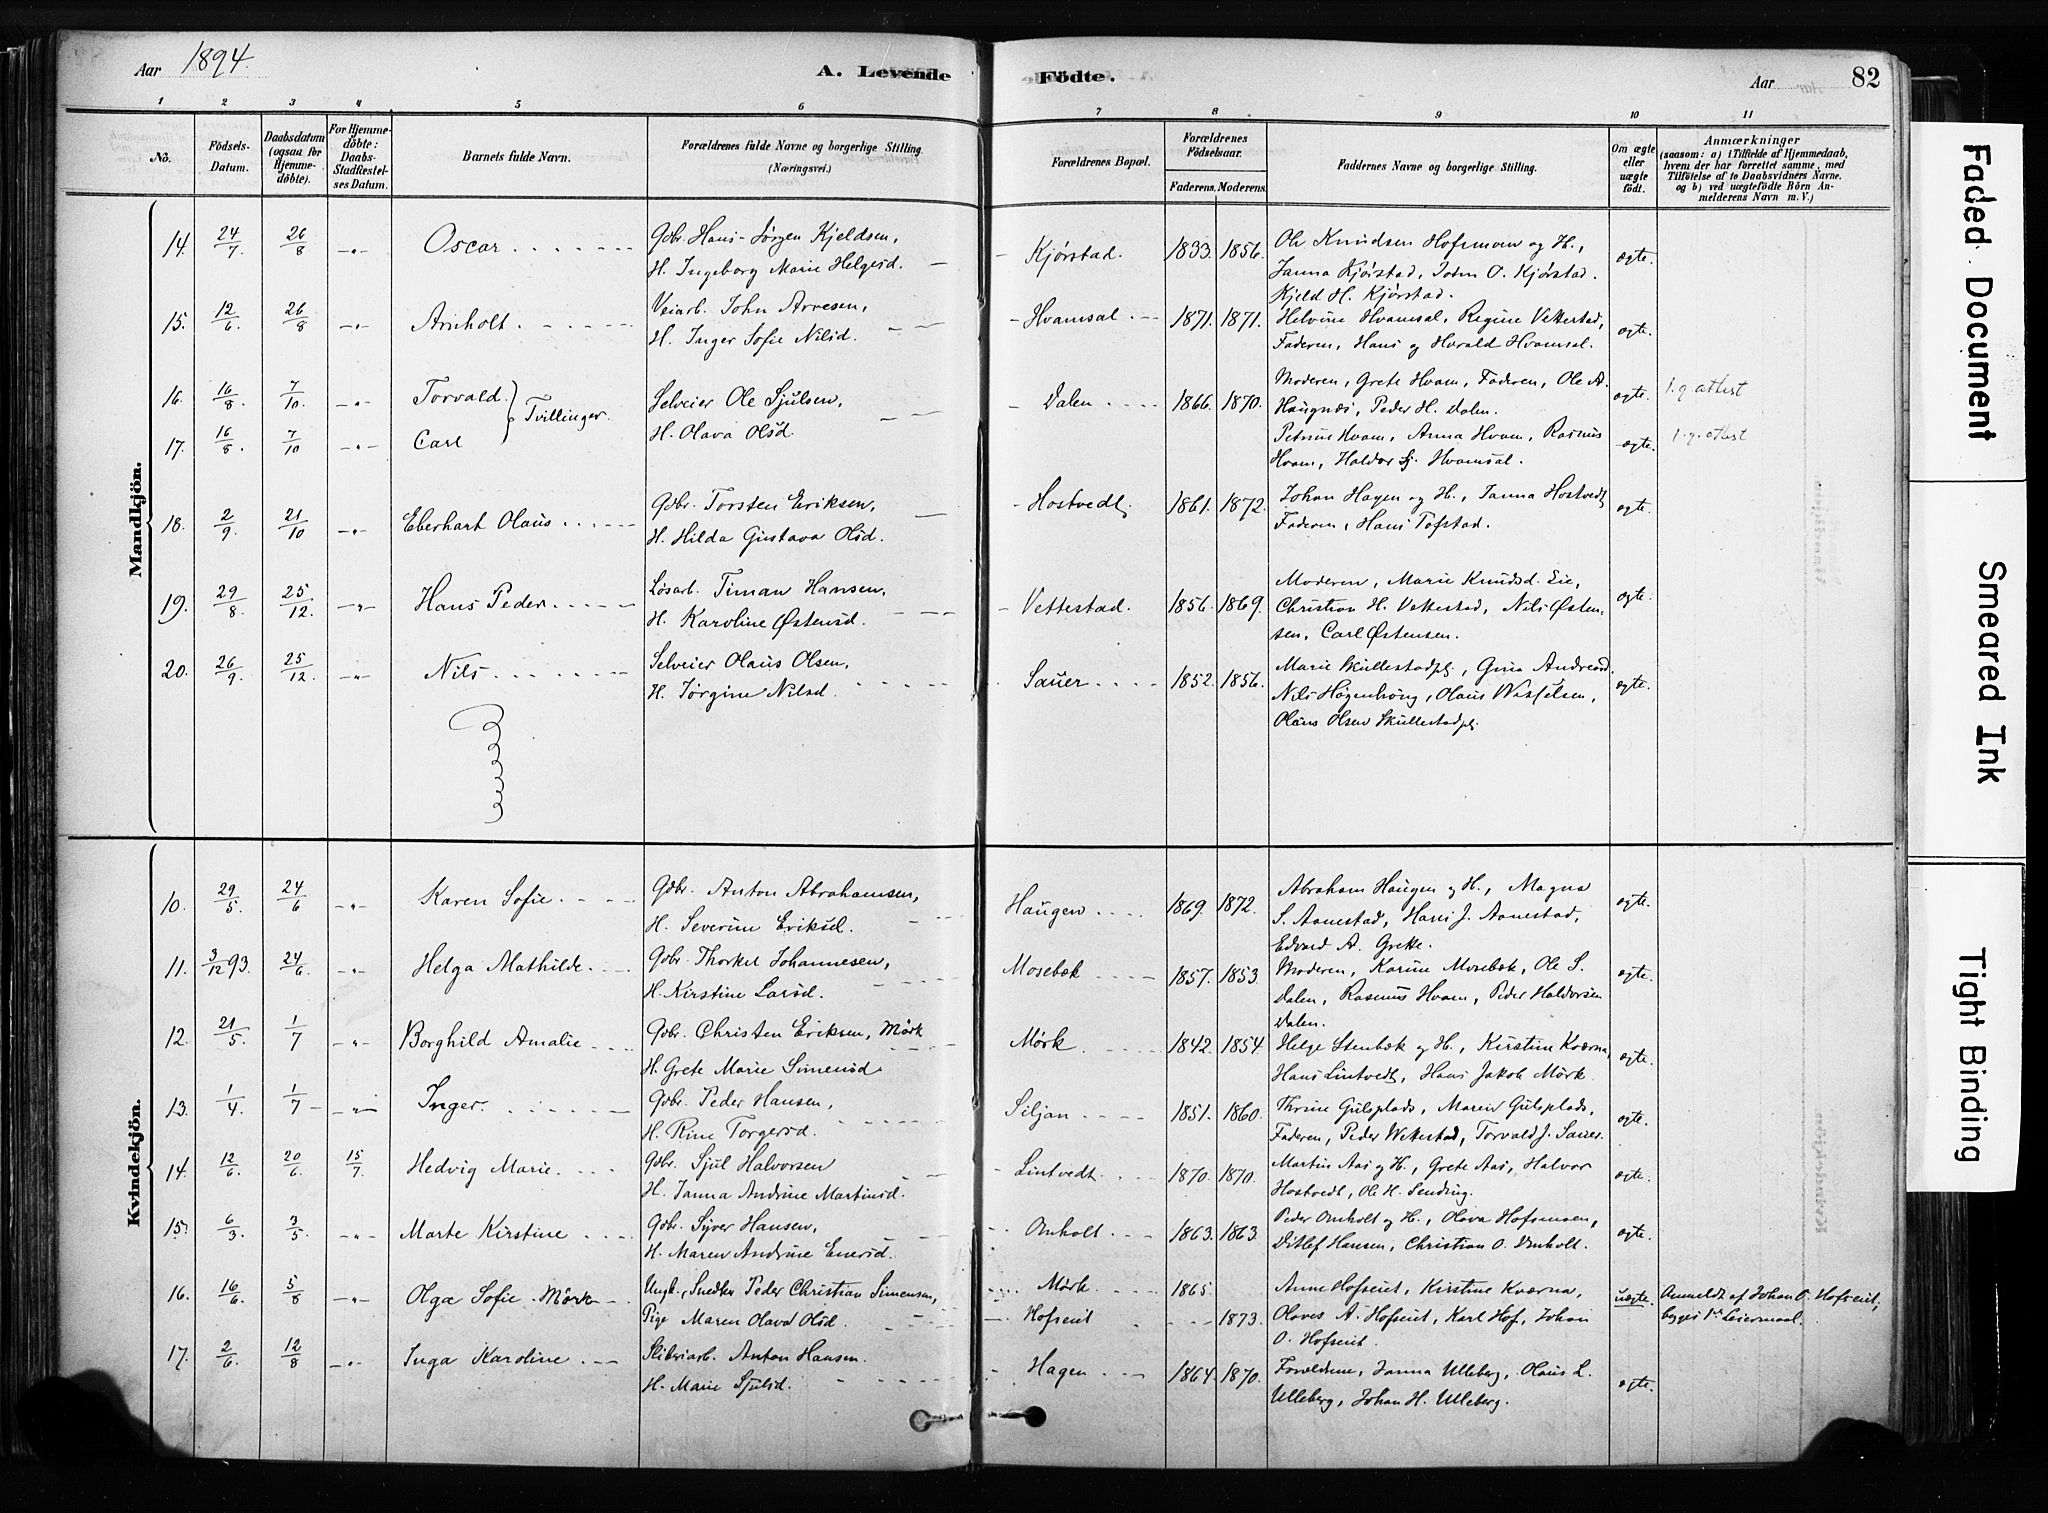 Aar 1894. A. Levende Födte. Aar 82
1 2 3 4 5 6 7 8 9 10 11
No. Födsels-Datum. Daabsdatum (ogsaa for Hjemmedöbte). For Hjemmedöbte: Daabs-Stadfæstelses Datum. Barnets fulde Navn. Forældrenes fulde Navne og borgerlige Stilling. (Næringsvei.) Forældrenes Bopæl. Forældrenes Födselsaar. Faderens. Moderens. Faddernes Navne og borgerlige Stilling. Om ægte eller uægte födt. Anmærkninger (saasom: a) i Tilfælde af Hjemmedaab, hvem der har forrettet samme, med Tilföielse af to Daabsvidners Navne, og b) ved uægtefödte Börn Anmelderens Navn m. V.)
Mandkjön.
14. 24/7 26/8 -"- Oscar Gbr. Hans Jørgen Kjeldsen, Kjørstad. 1833. 1856. Ole Knudsen Hofsmoen og H., ægte.
H. Ingeborg Marie Helgesd. Janna Kjørstad, John O. Kjørstad.
Kjeld H. Kjørstad.
15. 12/6 26/8 -"- Arnholt Veiarb. John Arvesen, Hvamsal 1871. 1871. Helvine Hvamsal, Regine Vettestad, ægte.
H. Inger Sofie Nilsd. Faderen, Hans og Harald Hvamsal.
16. 16/8 7/10 -"- Torvald } Tvillinger. Selveier Ole Sjulsen, Dalen 1866. 1870. Moderen, Grete Hvam, Faderen, Ole A. ægte. 1. g. attest
Haugnæs, Peder H. Dalen.
17. 16/8 7/10 -"- Carl H. Olava Olsd. Petrine Hvam, Anna Hvam, Rasmus ægte. 1. g. attest
Hvam, Haldor Sj. Hvamsal.
18. 2/9 21/10 -"- Eberhart Olaus Gbr. Torsten Eriksen, Hostvedt 1861. 1872. Johan Hagen og H., Janna Hostvedt ægte.
H. Hilda Gustava Olsd. Faderen, Hans Tofstad.
19. 29/8 25/12 -"- Hans Peder Løsarb. Timan Hansen, Vettestad. 1856. 1869. Moderen, Marie Knudsd. Lie, ægte.
H. Karoline Østensd. Christian H. Vettestad, Nils Østen-
sen, Carl Østensen.
20. 26/9 25/12 -"- Nils Selveier Olaus Olsen, Sauer 1852. 1856. Marie Skullestadpl, Gina Andreasd. ægte.
H. Jørgine Nilsd. Nils Høgenhoug, Olaus
Olaus Olsen Skullestadpl.
Kvindekjön.
10. 29/5 24/6 -"- Karen Sofie Gbr. Anton Abrahamsen, Haugen 1869. 1872. Abraham Haugen og H., Magna ægte.
H. Severine Eriksd. S. Aanestad, Hans J. Aanestad,
Edvard A. Grette.
11. 3/12 93. 24/6 -"- Helga Mathilde Gbr. Thorkel Johannesen, Mosebæk 1857. 1853. Moderen, Karine Mosebæk, Ole S. ægte.
H. Kirstine Larsd. Dalen, Rasmus Hvam, Peder Haldorsen
Dalen.
12. 21/5 1/7 -"- Borghild Amalie Gbr. Christen Eriksen, Mørk Mørk 1842. 1854. Helge Stenbæk og H., Kirstine Kværna, ægte.
H. Grete Marie Simensd. Hans Lintvedt, Hans Jakob Mørk.
13. 1/4 1/7 -"- Inger. Gbr. Peder Hansen, Siljan 1851. 1860. Thrine Gulsplads, Maren Gulsplads, ægte.
H. Rine Torgersd. Faderen, Peder Vettestad, Torvald J. Sauer.
14. 12/6 20/6 15/7 Hedvig Marie Gbr. Sjul Halvorsen Lintvedt 1870. 1870. Martin Aas og H., Grete Aas, Halvor ægte.
H. Janna Andrine Martinsd. Hostvedt, Ole H. Sending.
15. 6/3 3/5 -"- Marte Kirstine Gbr. Syver Hansen, Omholt 1863. 1863. Peder Omholt og H., Olava Hofsmoen, ægte.
H. Maren Andrine Enersd. Ditlef Hansen, Christian O. Omholt.
16. 16/6 5/8 -"- Olga Sofie Mørk Ungk., Snedker Peder Christian Simensen, Mørk 1865 Anne Hofseit, Kirstine Kværna, uægte. Anmeldt af Johan O. Hofseit,
Pige Maren Olava Olsd. Hofseit 1873. Olaves A. Hofseit, Karl Hof, Johan begges 1ste Leiermaal.
O. Hofseit.
17. 2/6 12/8 -"- Inga Karoline Sliberiarb. Anton Hansen. Hagen 1864. 1870. Forældrene, Janna Ulleberg, Olaus L. ægte.
H. Marie Sjulsd. Ulleberg, Johan H. Ulleberg.
Faded Document
Smeared Ink
Tight Binding